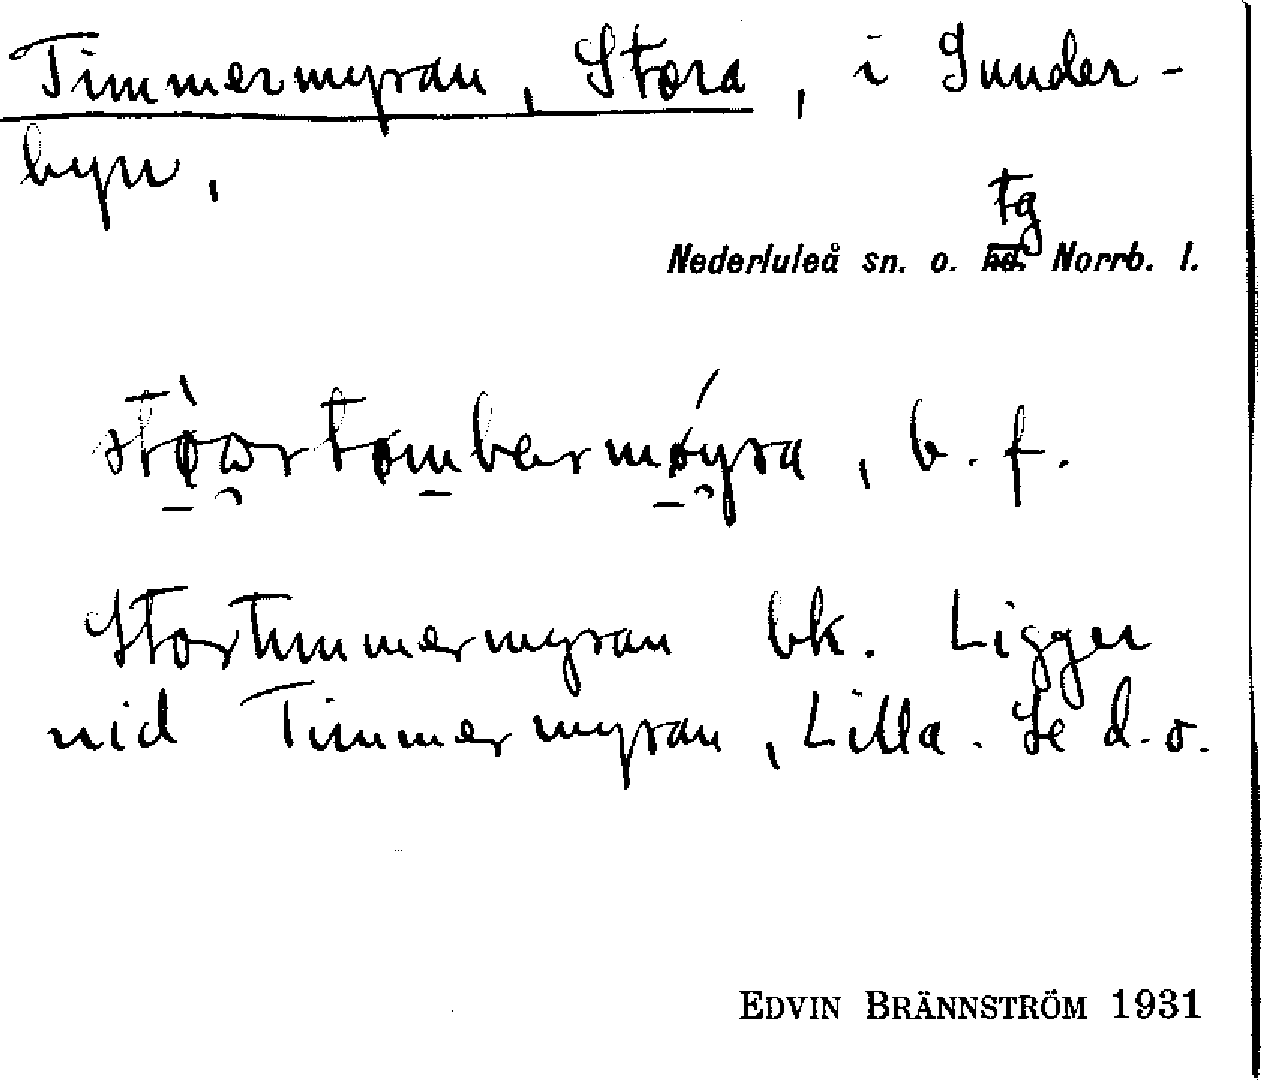 Timmermyran, Stora, i Sunder-
byn,
tg
Nederluleå sn. o. hd. Norrb. l.
stǿωrtømbermǿyra, b. f.
Stortimmermyran bk. Ligger
vid Timmermyran, Lilla. Se d. o.
EDVIN BRÄNNSTRÖM 1931